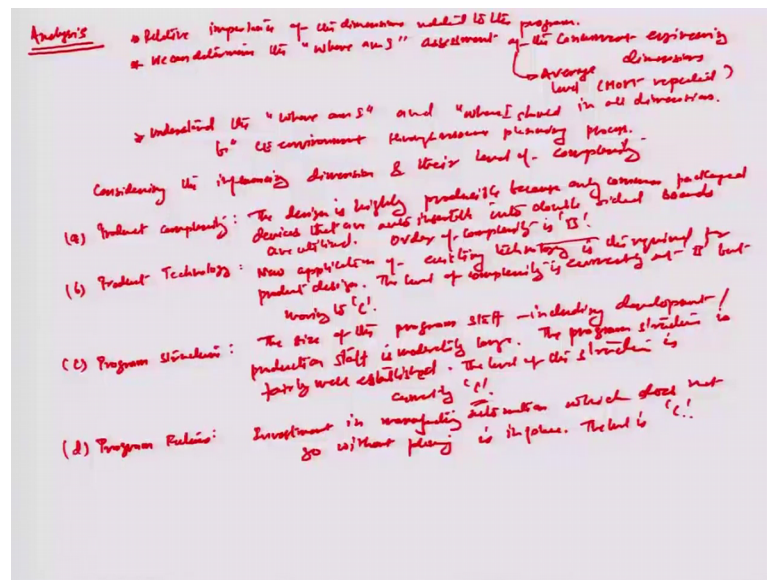 Analysis
* Relative importance of the dimensions related to the program.
* We can determine the "Where am I" assessment of the Concurrent engineering dimensions
Average level (Most repeated)
* Understand the "Where am I" and "Where I should be" in all dimensions.
CE environment through process planning process.
Considering the influencing dimension & their level of complexity
(a) Product complexity: The design is highly producible because only common packaged
devices that are auto insertable into double sided boards
are utilized. Order of complexity is 'B'.
(b) Product Technology: New application of existing technology is the required for
product design. The level of complexity is currently at B but
moving to 'C'.
(c) Program structure: The size of the program staff - including development/
production staff is moderately large. The program structure is
fairly well established. The level of the structure is
currently 'C'.
(d) Program Futures: Investment in automation which does not
go without is in place. The level is 'C'.